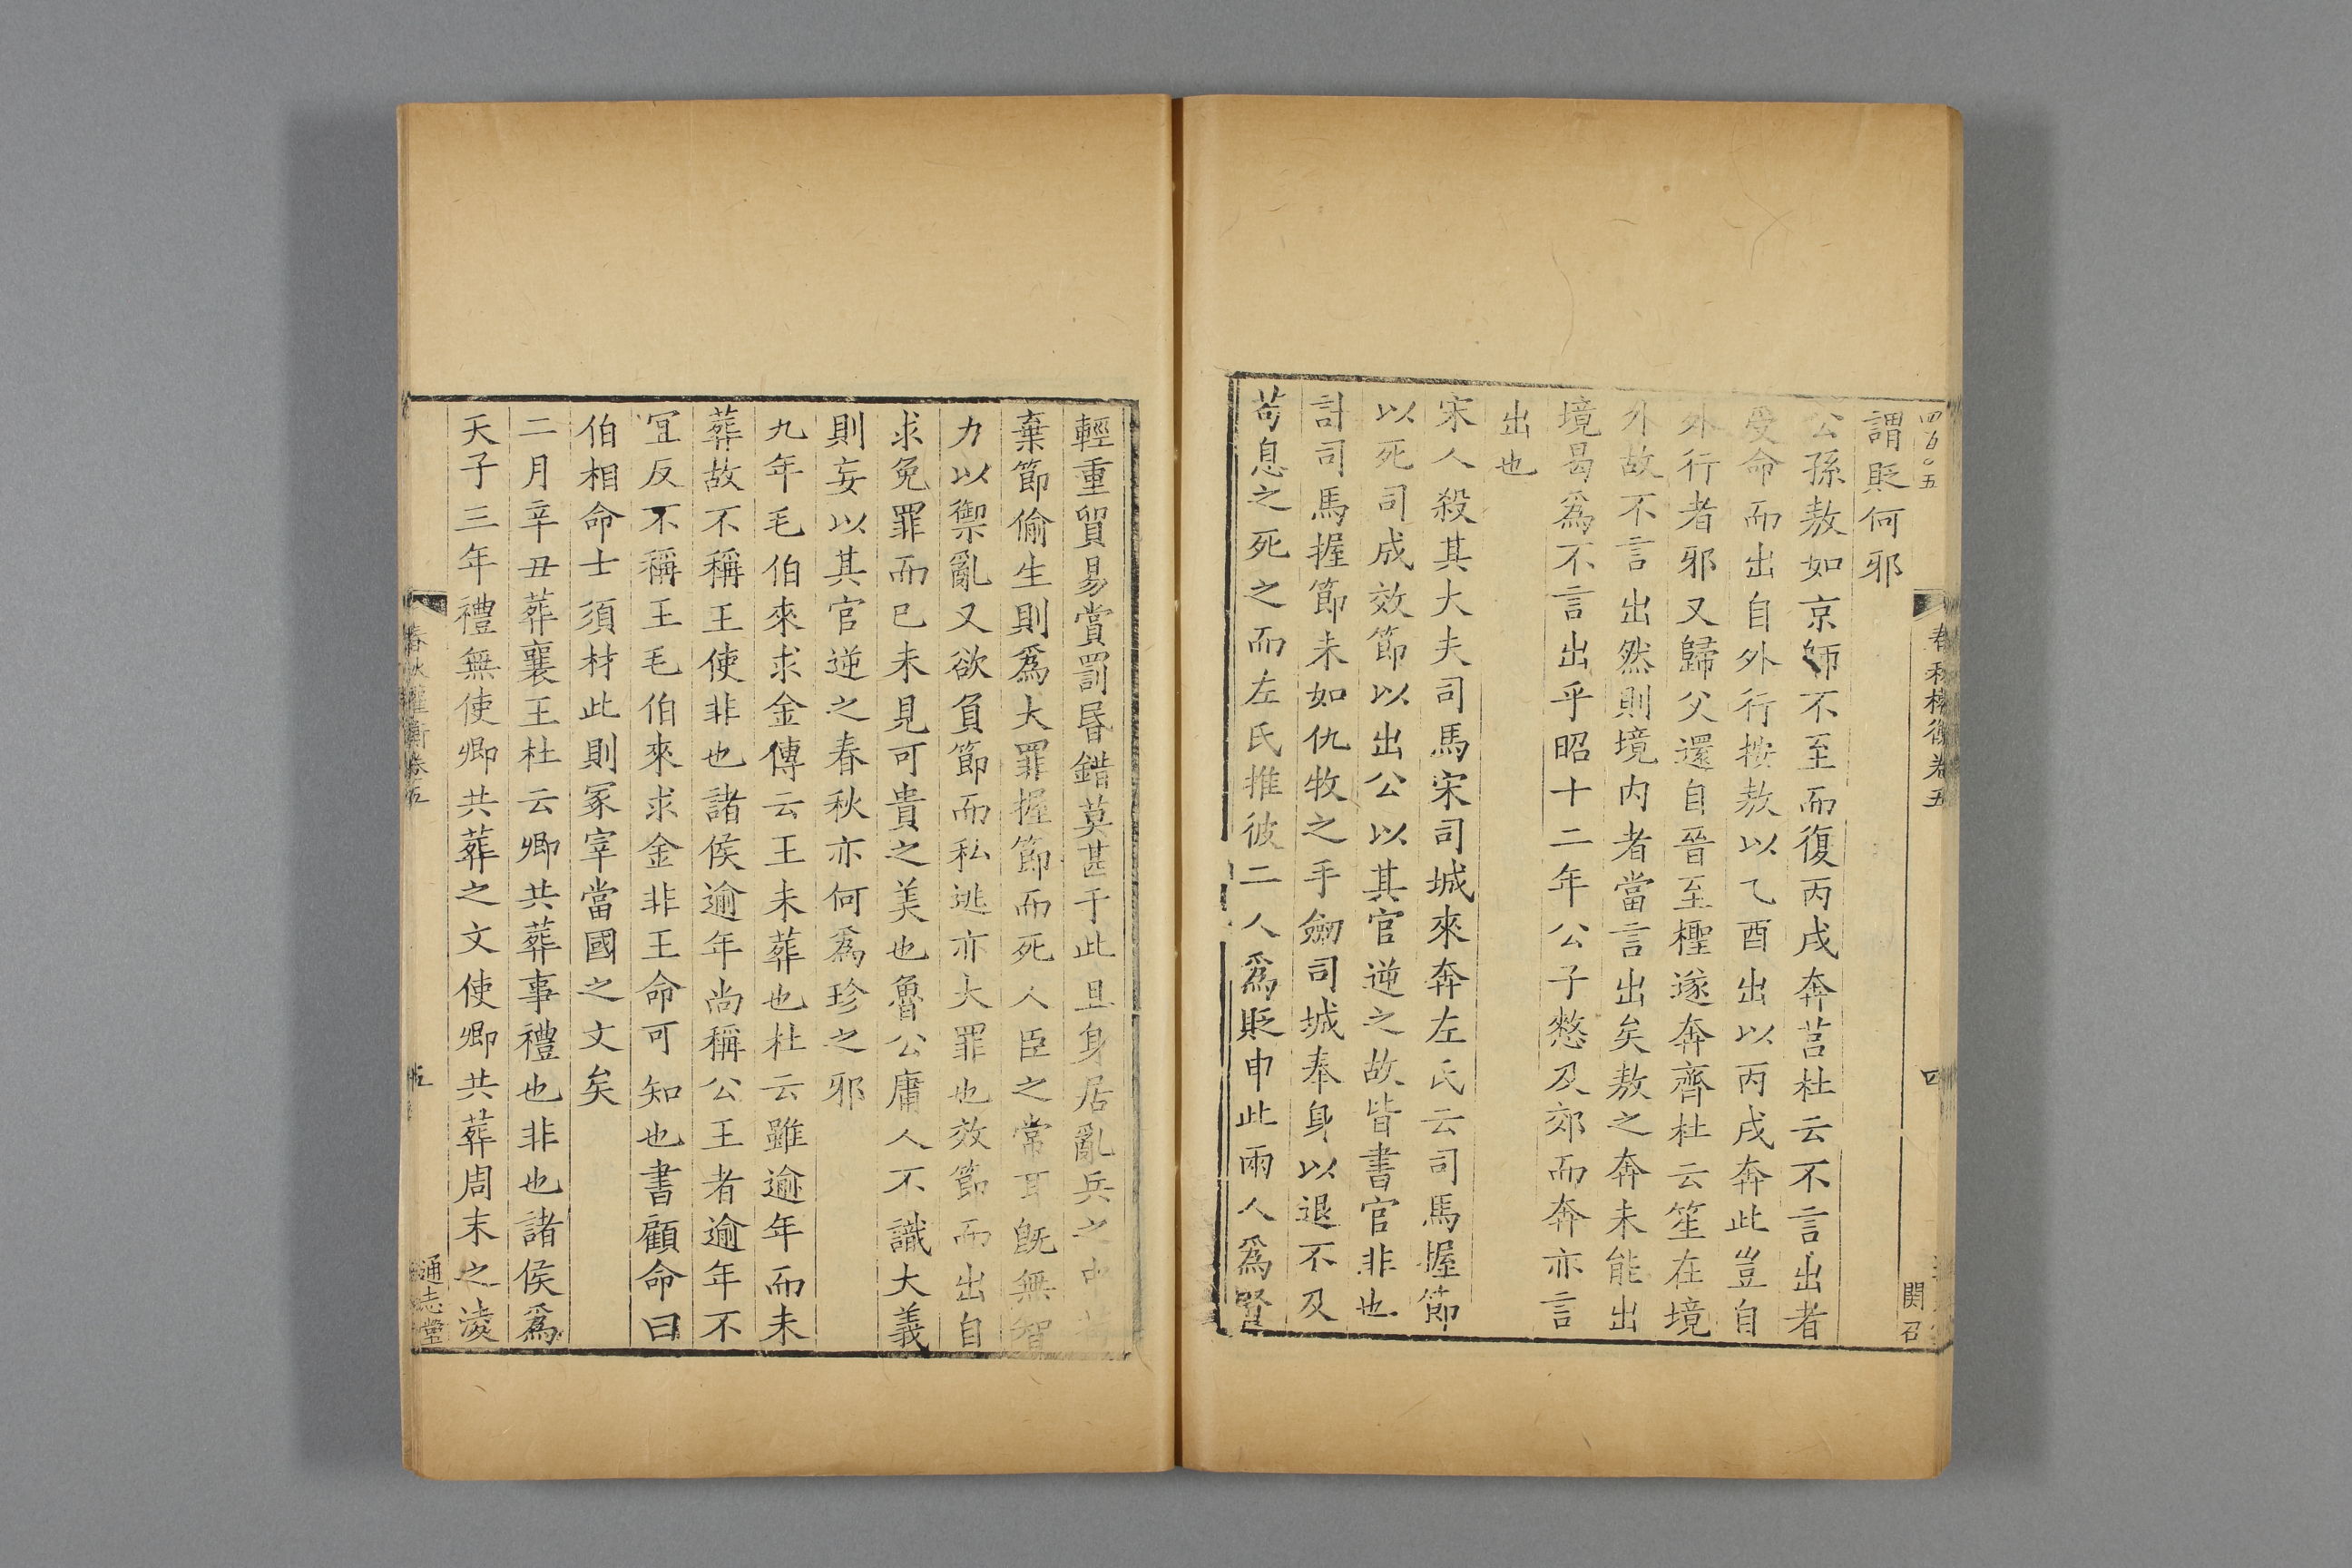 四百○五
春秋權衡卷五
四
関召
謂貶何邪
公孫敖如京師不至而復丙戌奔莒杜云不言出者
受命而出自外行按敖以乙酉出以丙戌奔此豈自
外行者邪又歸父還自晉至檉遂奔齊杜云笙在境
外故不言出然則境内者當言出矣敖之奔未能出
境曷爲不言出乎昭十二年公子憗及郊而奔亦言
出也
宋人殺其大夫司馬宋司城來奔左氏云司馬握節
以死司成效節以出公以其官逆之故皆書官非也
計司馬握節未如仇牧之手劒司城奉身以退不及
荀息之死之而左氏推彼二人爲貶申此兩人爲賢
輕重貿易賞罰昬錯莫甚于此且身居亂兵之中
棄節偷生則爲大罪握節而死人臣之常耳旣無智
力以禦亂又欲負節而私逃亦大罪也效節而出自
求免罪而已未見可貴之美也魯公庸人不識大義
則妄以其官逆之春秋亦何爲珍之邪
九年毛伯來求金傳云王未葬也杜云雖逾年而未
葬故不稱王使非也諸侯逾年尚稱公王者逾年不
宜反不稱王毛伯來求金非王命可知也書顧命曰
伯相命士須材此則冢宰當國之文矣
二月辛丑葬襄王杜云卿共葬事禮也非也諸侯爲
天子三年禮無使卿共葬之文使卿共葬周末之淩
春秋權衡卷五
五
通志堂